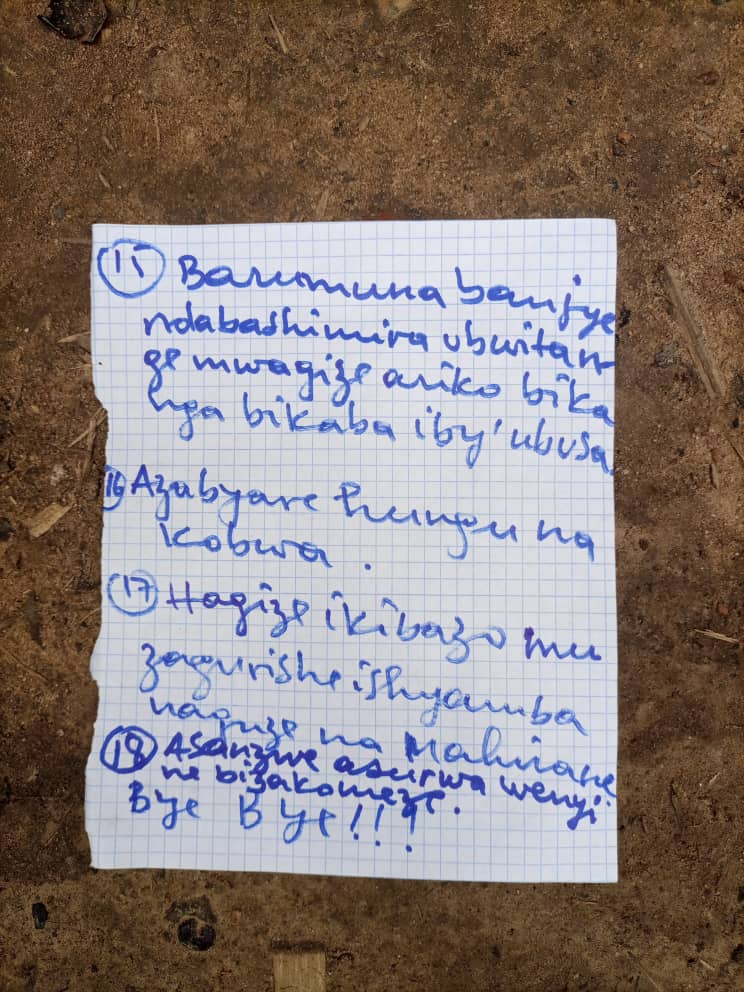 15 Barumuna banjye
ndabashimira ubwitan
ge mwagize ariko bika
nga bikaba iby'ubusa
16 Azabyare hungu na
kobwa.
17 Hagize ikibazo mu
zagurishe ishyamba
naguze na Mahirane
18 Asanzwe asurwa wenyi
ne bizakomeze.
Bye Bye!!!